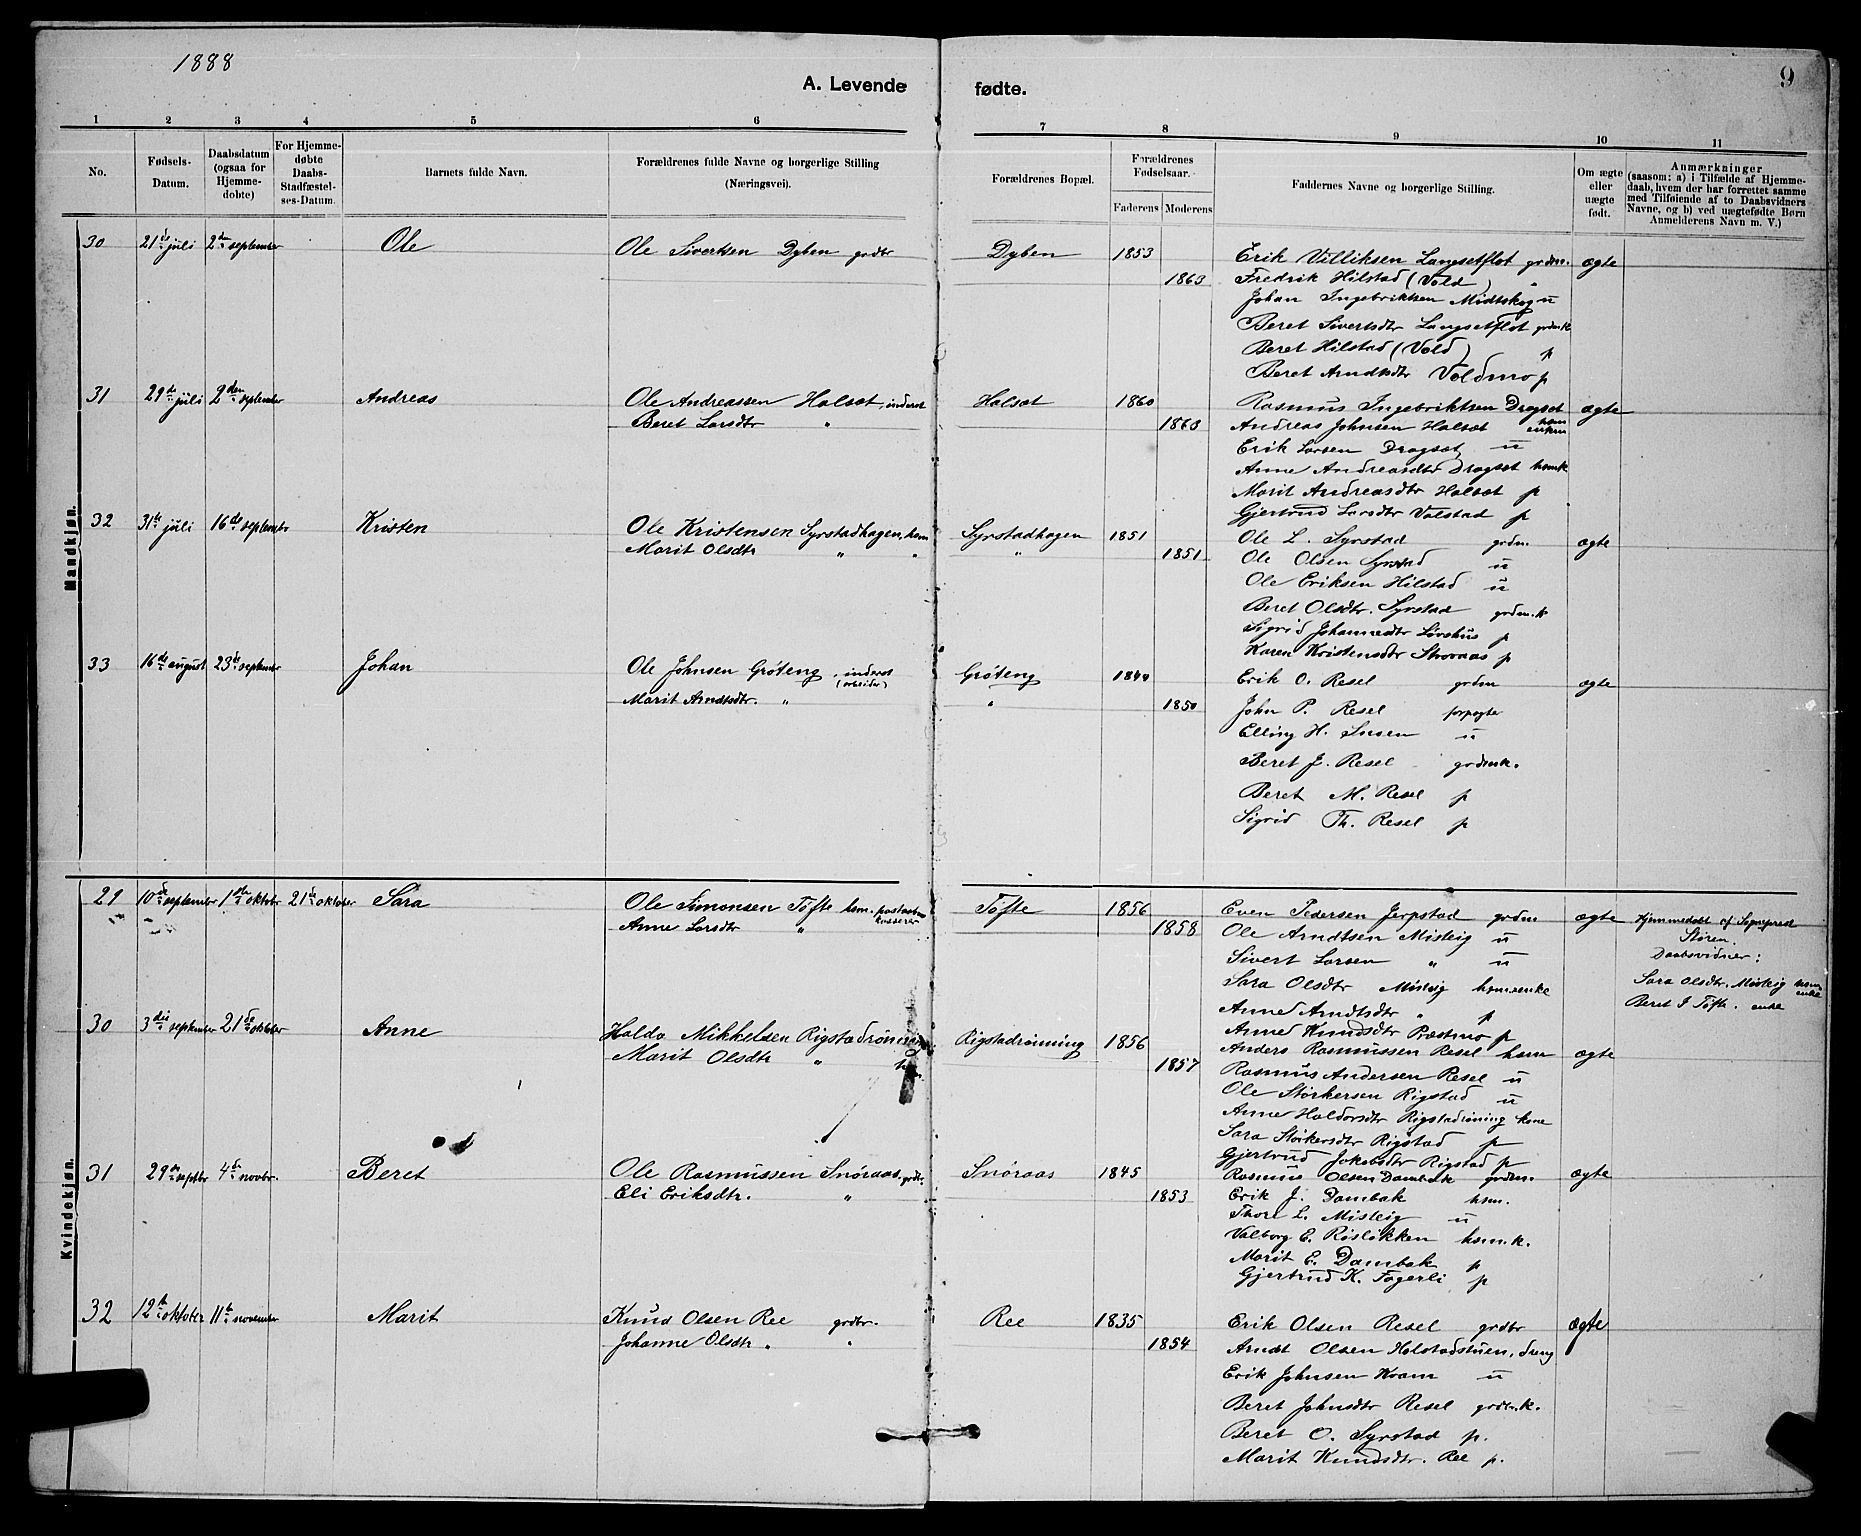 1888
A. Levende fødte.
9
1 2 3 4 5 6 7 8 9 10 11
No.
Fødsels-Datum.
Daabsdatum (ogsaa for Hjemmedøbte)
For Hjemmedøbte Daabs-Stadfæstelses-Datum.
Barnets fulde Navn.
Forældrenes fulde Navne og borgerlige Stilling (Næringsvei).
Forældrenes Bopæl.
Forældrenes Fødselsaar.
Faderens Moderens
Faddernes Navne og borgerlige Stilling.
Om ægte eller uægte født.
Anmærkninger
(saasom: a) i Tilfælde af Hjemmedaab, hvem der har forrettet samme med Tilføiende af to Daabsvidners Navne, og b) ved uægtefødte Børn Anmelderens Navn m. V.)
Mandkjøn.
30 21de juli 2den september Ole Ole Sivertsen Dyben grdbr Dyben 1853 Erik Villiksen Langsetflot grdm. ægte
1863 Fredrik Hilstad (Vold) "
Johan Ingebriktsen Midtskog u
Beret Sivertsdtr Langsetflot grdmk
Beret Hilstad (Vold) p
Beret Arndtsdtr Voldmo p
31 29de juli 2den september Andreas Ole Andreassen Halsæt, inderst Halsæt 1860 Rasmus Ingebriktsen Dragset hsm ægte
Beret Larsdtr " 1863 Andreas Johnsen Halsæt enkm
Erik Larsen Dragset u
Anne Andreasdtr Dragset hsmk
Marit Andreasdtr Halsæt p
Gjertrud Larsdtr Volstad p
32 31te juli 16de september Kristen Ole Kristensen Syrstadhagen, hsm Syrstadhagen 1851 Ole L. Syrstad grdm. ægte
Marit Olsdtr " " " 1851 Ole Olsen Syrstad u
Ole Eriksen Hilstad u
Beret Olsdtr. Syrstad grdm.k
Sigrid Johannesdtr Løvshus p
Karen Kristensdtr Storaas p
33 16de august 23de september Johan Ole Johnsen Grøteng, inderst (arbeider) Grøteng 1844 Erik O. Resel grdm ægte
Marit Arndtsdtr. " " 1850 John P. Resel forpagte
Elling H. Snsen u
Beret J. Resel grdmk.
Beret M. Resel p
Sigrid Th. Resel p
Kvindekjøn.
29 10de september 1ste oktobr 21de oktober Sara Ole Simonsen Tøfte hsm. Tøfte 1856 Even Pedersen Jerpstad grdm ægte Hjemmedøbt af Sogneprest
Anne Larsdtr " 1858 Ole Arndtsen Misleig u Støren.
Sivert Larsen " u Daabsvidner:
Sara Olsdtr Misleig hsmsenke Sara Olsdtr. Misleig hsmenke
Anne Arndtsdtr " p Beret J Tøfte. enke
Anne Knudsdtr Præstmo p
30 3die september 21de oktober Anne Haldo Mikkelsen Rigstadrønning Rigstadrønning 1856 Anders Rasmussen Resel hsm ægte
Marit Olsdtr " hsm. 1857 Rasmus Andersen Resel u
Ole Størkersen Rigstad u
Anne Haldorsdtr Rigstadrøning kone
Sara Størkersdtr Rigstad p
Gjertrud Jakobsdtr Rigstad p
31 29de septbr 4de novbr. Beret Ole Rasmussen Snøraas, grdbr. Snøraas 1845 Rasmus Olsen Dambak grdm. ægte
Eli Eriksdtr. " 1853 Erik J. Dambak hsm.
Thore L. Misleig u
Valborg E. Røsløkken hsm.k.
Marit E. Dambak p
Gjertrud K. Fagerli p
32 12te oktober 11te november Marit Knud Olsen Ree grdbr. Ree 1835 Erik Olsen Resel grdbr ægte
Johanne Olsdtr " " 1854 Arndt Olsen Holstadstuen, dreng
Erik Johnsen Kvam u
Beret Johnsdtr Resel grdm.k.
Beret O. Syrstad p.
Marit Knudsdtr. Ree p.